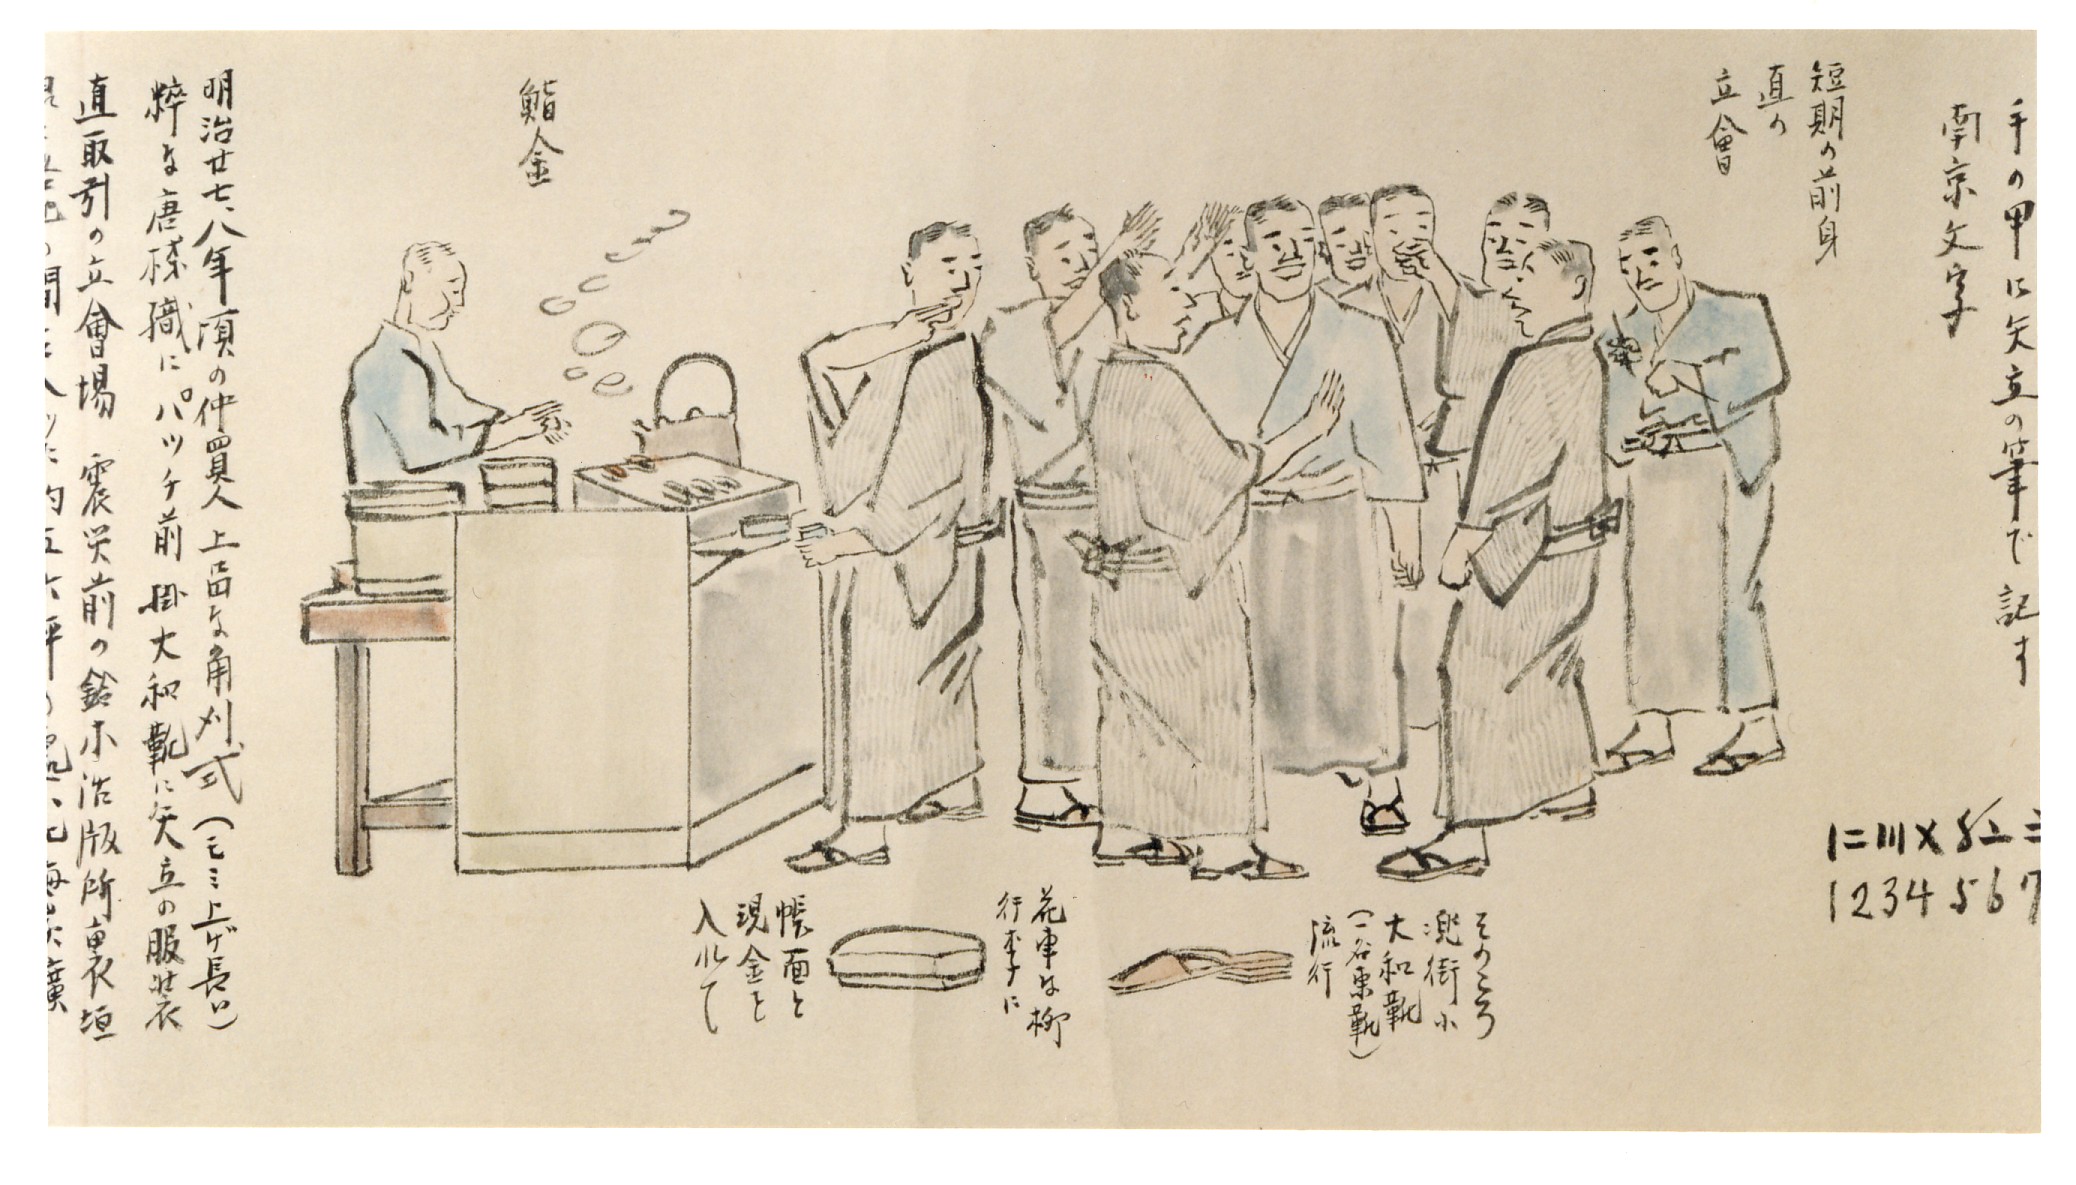 手の甲に矢立の筆で記す
南京文字
〡二〣〤
1 2 3 4 5 6 7
短期の前身
直の
立會
そのころ
兜街小
大和靴
流行
花車な柳
行李に
帳面と
現金を
入れて
鮨金
明治廿七、八年頃の仲買人 上品な角刈式(モミ上ゲ長い)
粋な唐棧織にパッチ前掛大和靴に矢立の服装
直取引の立會場 震災前の鈴木活版所裏垣